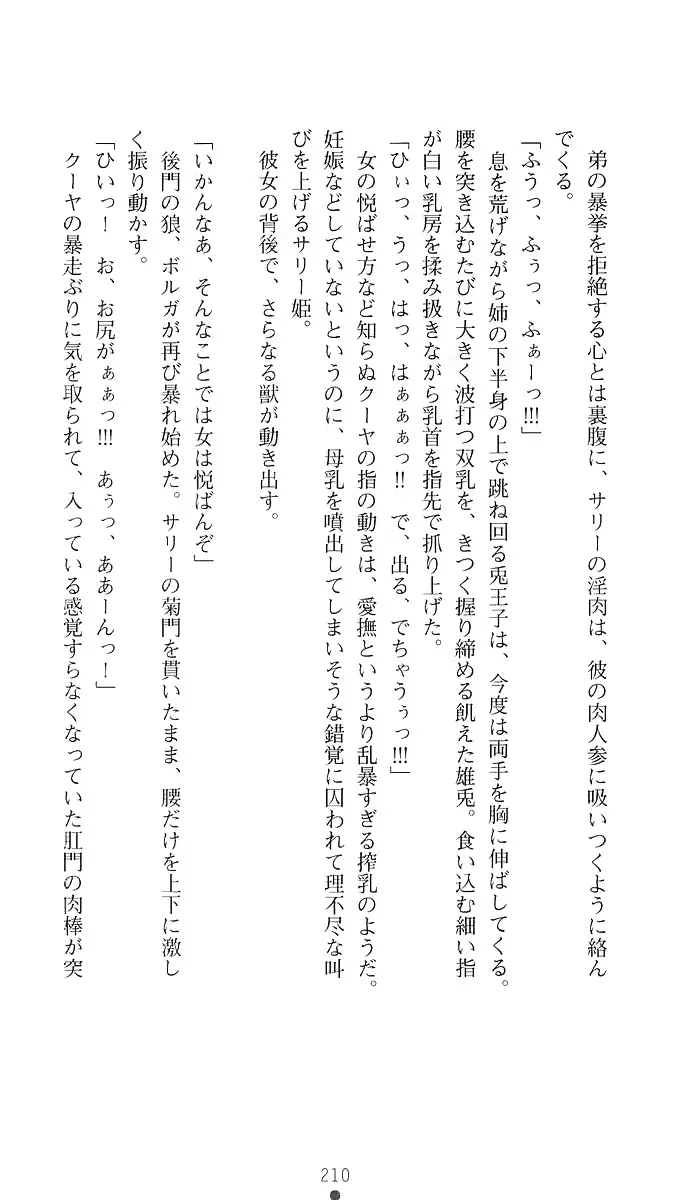 弟の暴挙を拒絶する心とは裏腹に、サリーの淫肉は、彼の肉人参に吸いつくように絡ん
でくる。
「ふうっ、ふぅっ、ふぁーっ!!!」
息を荒げながら姉の下半身の上で跳ね回る兎王子は、今度は両手を胸に伸ばしてくる。
腰を突き込むたびに大きく波打つ双乳を、きつく握り締める飢えた雄兎。食い込む細い指
が白い乳房を揉み扱きながら乳首を指先で抓り上げた。
「ひぃっ、うっ、はっ、はぁぁぁっ!!　で、出る、でちゃうぅっ!!!」
女の悦ばせ方など知らぬクーヤの指の動きは、愛撫というより乱暴すぎる搾乳のようだ。
妊娠などしていないというのに、母乳を噴出してしまいそうな錯覚に囚われて理不尽な叫
びを上げるサリー姫。
彼女の背後で、さらなる獣が動き出す。
「いかんなあ、そんなことでは女は悦ばんぞ」
後門の狼、ボルガが再び暴れ始めた。サリーの菊門を貫いたまま、腰だけを上下に激し
く振り動かす。
「ひいっ！　お、お尻がぁぁっ!!!　あぅっ、ああーんっ！」
クーヤの暴走ぶりに気を取られて、入っている感覚すらなくなっていた肛門の肉棒が突
210